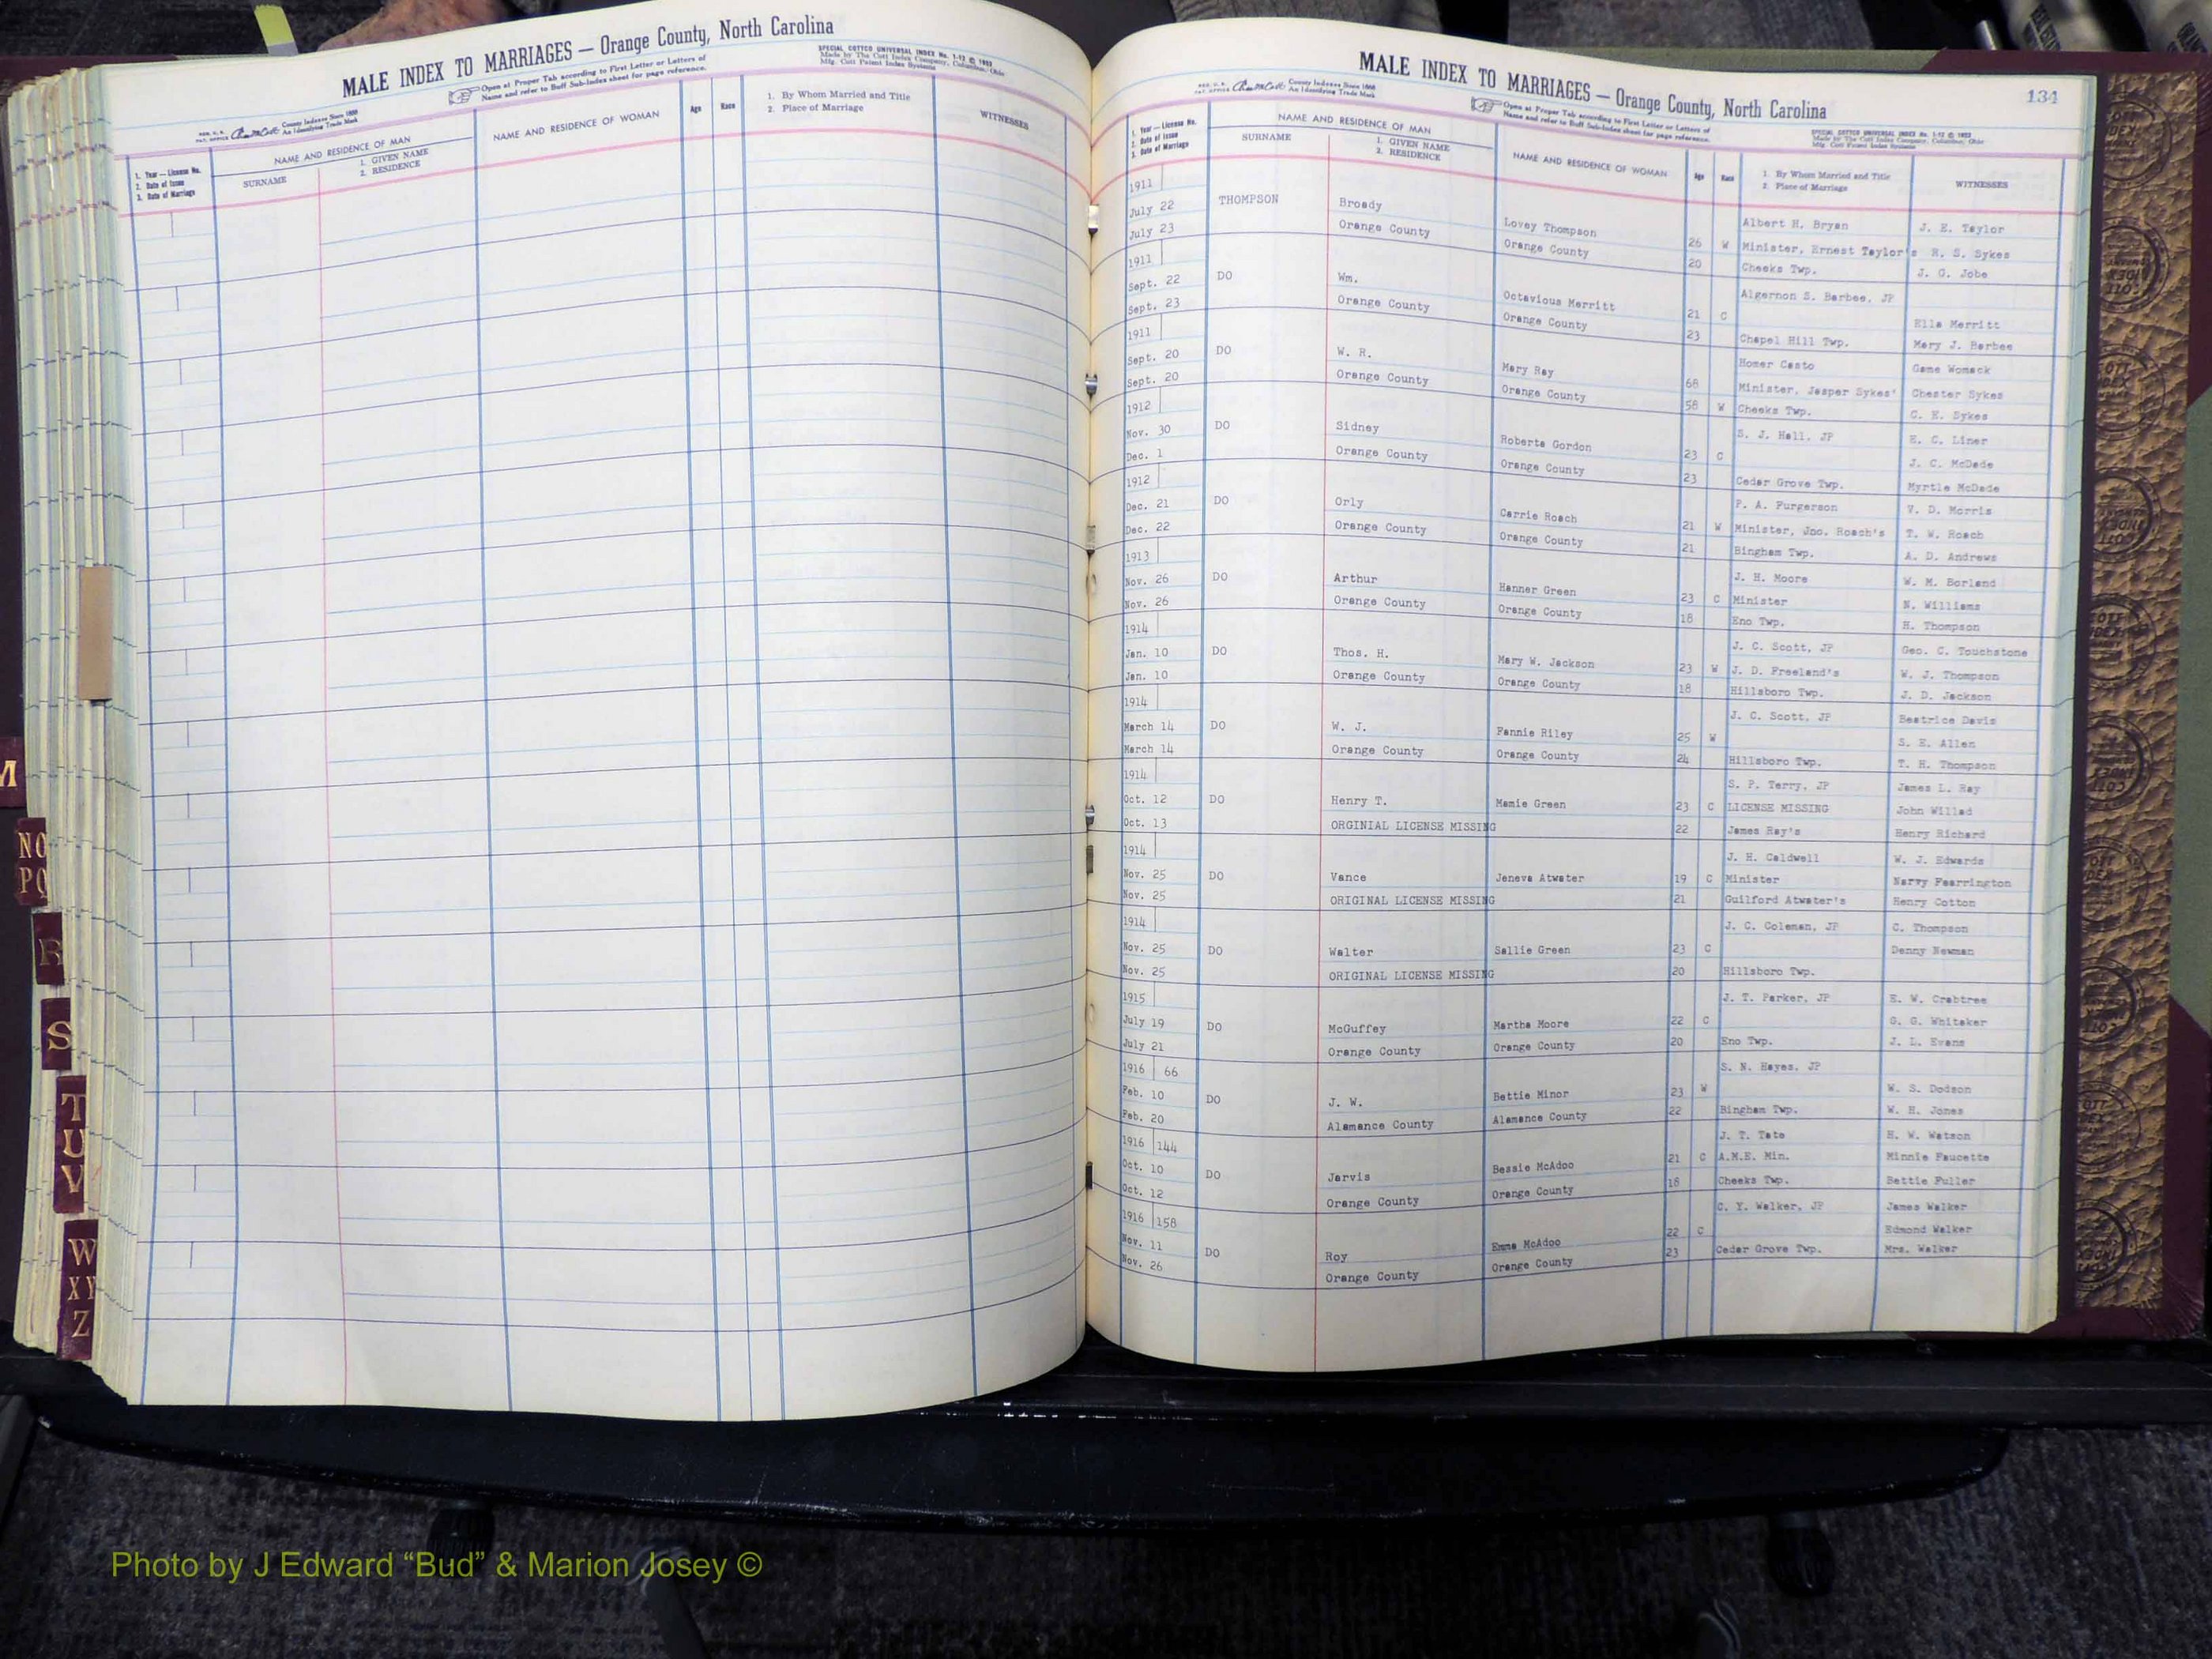 MALE INDEX TO MARRIAGES — Orange County, North Carolina
Open at Proper Tab according to First Letter or Letters of
Name and refer to Buff Sub-Index sheet for page reference.
SPECIAL COTTCO UNIVERSAL INDEX No. 1-12 © 1952
Made by The Cott Index Company, Columbus, Ohio
Mfg. Cott Patent Index Systems
County Indexes Since 1888
An Identifying Trade Mark
1. Year — License No.
2. Date of Issue
3. Date of Marriage
NAME AND RESIDENCE OF MAN
SURNAME
1. GIVEN NAME
2. RESIDENCE
NAME AND RESIDENCE OF WOMAN
Age
Race
1. By Whom Married and Title
2. Place of Marriage
WITNESSES
MALE INDEX TO MARRIAGES — Orange County, North Carolina
134
County Indexes Since 1888
An Identifying Trade Mark
Open at Proper Tab according to First Letter or Letters of
Name and refer to Buff Sub-Index sheet for page reference.
Made by The Cott Index Company, Columbus, Ohio
Mfg. Cott Patent Index Systems
1. Year — License No.
2. Date of Issue
3. Date of Marriage
NAME AND RESIDENCE OF MAN
SURNAME
1. GIVEN NAME
2. RESIDENCE
NAME AND RESIDENCE OF WOMAN
Age
Race
1. By Whom Married and Title
2. Place of Marriage
WITNESSES
1911 Albert H. Bryan J. E. Taylor
July 22 THOMPSON Broady Lovey Thompson 26 W Minister, Ernest Taylor's R. S. Sykes
July 23 Orange County Orange County 20 Cheeks Twp. J. G. Jobe
1911 Algernon S. Barbee, JP
Sept. 22 DO Wm. Octavious Merritt 21 C Ella Merritt
Sept. 23 Orange County Orange County 23 Chapel Hill Twp. Mary J. Barbee
1911 Homer Casto Game Womack
Sept. 20 DO W. R. Mary Ray 68 Minister, Jasper Sykes' Chester Sykes
Sept. 20 Orange County Orange County 58 W Cheeks Twp. C. E. Sykes
1912 S. J. Hall, JP E. C. Liner
Nov. 30 DO Sidney Roberta Gordon 23 C J. C. McDade
Dec. 1 Orange County Orange County 23 Cedar Grove Twp. Myrtle McDade
1912 P. A. Furgerson V. D. Morris
Dec. 21 DO Orly Carrie Roach 21 W Minister, Jno. Roach's T. W. Roach
Dec. 22 Orange County Orange County 21 Bingham Twp. A. D. Andrews
1913 J. H. Moore W. M. Borland
Nov. 26 DO Arthur Hanner Green 23 C Minister N. Williams
Nov. 26 Orange County Orange County 18 Eno Twp. H. Thompson
1914 J. C. Scott, JP Geo. C. Touchstone
Jan. 10 DO Thos. H. Mary W. Jackson 23 W J. D. Freeland's W. J. Thompson
Jan. 10 Orange County Orange County 18 Hillsboro Twp. J. D. Jackson
1914 J. C. Scott, JP Beatrice Davis
March 14 DO W. J. Fannie Riley 25 W S. E. Allen
March 14 Orange County Orange County 24 Hillsboro Twp. T. H. Thompson
1914 S. P. Terry, JP James L. Ray
Oct. 12 DO Henry T. Mamie Green 23 C LICENSE MISSING John Willad
Oct. 13 ORGINIAL LICENSE MISSING 22 James Ray's Henry Richard
1914 J. H. Caldwell W. J. Edwards
Nov. 25 DO Vance Jeneva Atwater 19 C Minister Narvy Fearrington
Nov. 25 ORIGINAL LICENSE MISSING 21 Guilford Atwater's Henry Cotton
1914 J. C. Coleman, JP C. Thompson
Nov. 25 DO Walter Sallie Green 23 C Denny Newman
Nov. 25 ORIGINAL LICENSE MISSING 20 Hillsboro Twp.
1915 J. T. Parker, JP E. W. Crabtree
July 19 DO McGuffey Martha Moore 22 C G. G. Whitaker
July 21 Orange County Orange County 20 Eno Twp. J. L. Evans
1916 66 S. N. Hayes, JP
Feb. 10 DO J. W. Bettie Minor 23 W W. S. Dodson
Feb. 20 Alamance County Alamance County 22 Bingham Twp. W. H. Jones
1916 144 J. T. Tate H. W. Watson
Oct. 10 DO Jarvis Bessie McAdoo 21 C A.M.E. Min. Minnie Faucette
Oct. 12 Orange County Orange County 18 Cheeks Twp. Bettie Fuller
1916 158 C. Y. Walker, JP James Walker
Nov. 11 DO Roy Emma McAdoo 22 C Edmond Walker
Nov. 26 Orange County Orange County 23 Cedar Grove Twp. Mrs. Walker
M
NO
PQ
R
S
T
U
V
W
XY
Z
Photo by J Edward “Bud” & Marion Josey ©